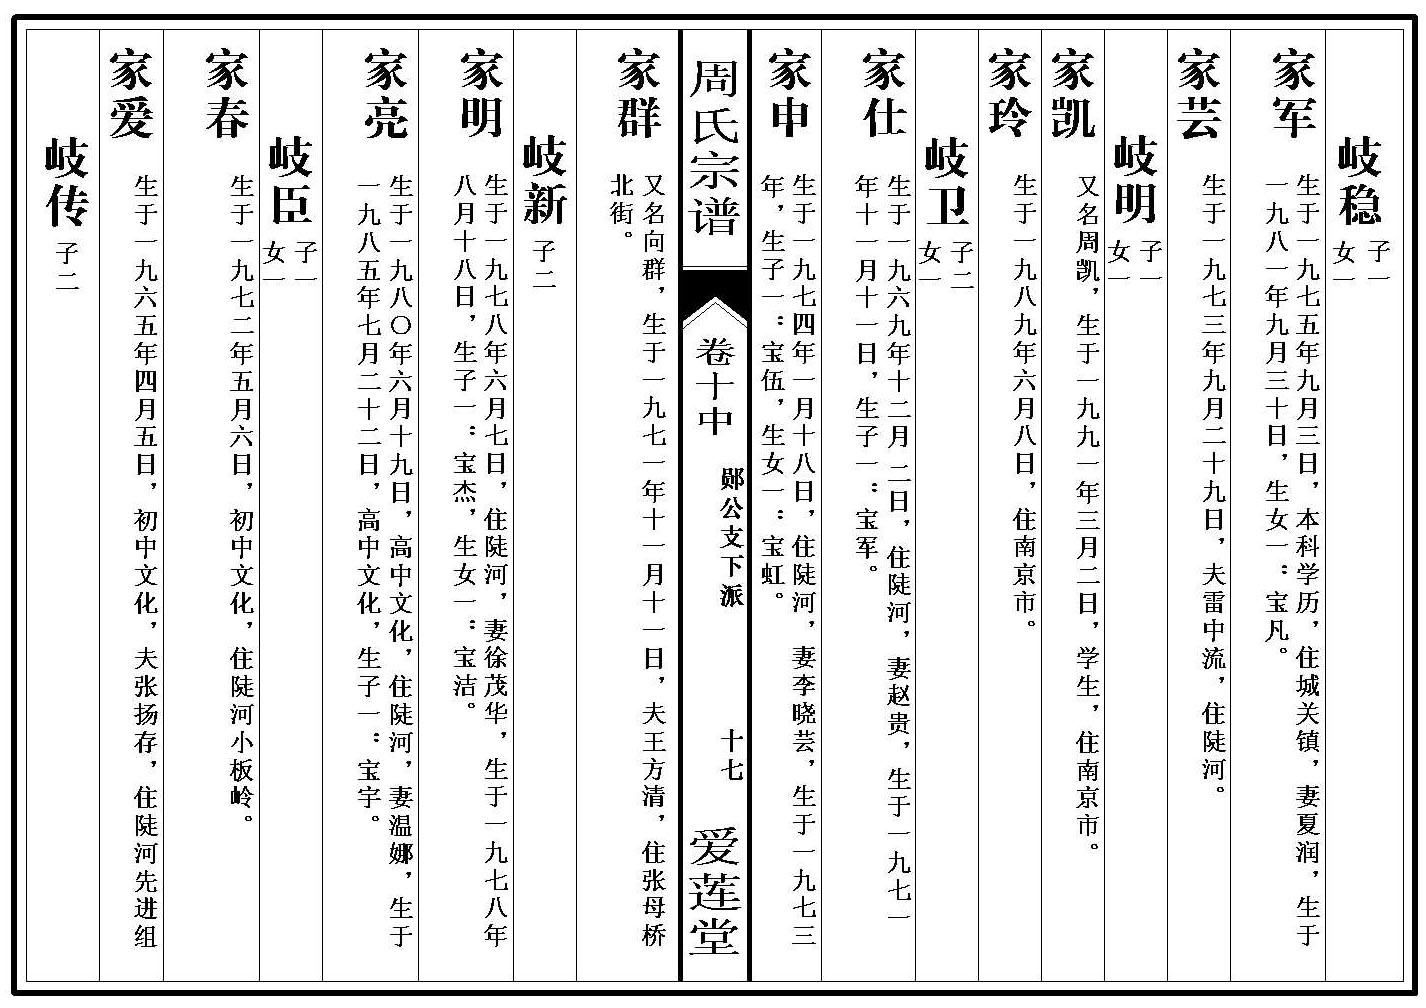 岐稳
子一
女一
家军
生于一九七五年九月三日，本科学历，住城关镇，妻夏润，生于
一九八一年九月三十日，生女一：宝凡。
家芸
生于一九七三年九月二十九日，夫雷中流，住陡河。
岐明
子一
女一
家凯
又名周凯，生于一九九一年三月二日，学生，住南京市。
家玲
生于一九八九年六月八日，住南京市。
岐卫
子二
女一
家仕
生于一九六九年十二月二日，住陡河，妻赵贵，生于一九七一
年十一月十一日，生子一：宝军。
家申
生于一九七四年一月十八日，住陡河，妻李晓芸，生于一九七三
年，生子一：宝伍，生女一：宝虹。
周氏宗谱
卷十中
郧公支下派
十七
爱莲堂
家群
又名向群，生于一九七一年十一月十一日，夫王方清，住张母桥
北街。
岐新
子二
家明
生于一九七八年六月七日，住陡河，妻徐茂华，生于一九七八年
八月十八日，生子一：宝杰，生女一：宝洁。
家亮
生于一九八〇年六月十九日，高中文化，住陡河，妻温娜，生于
一九八五年七月二十二日，高中文化，生子一：宝宇。
岐臣
子一
女一
家春
生于一九七二年五月六日，初中文化，住陡河小板岭。
家爱
生于一九六五年四月五日，初中文化，夫张扬存，住陡河先进组
岐传
子二